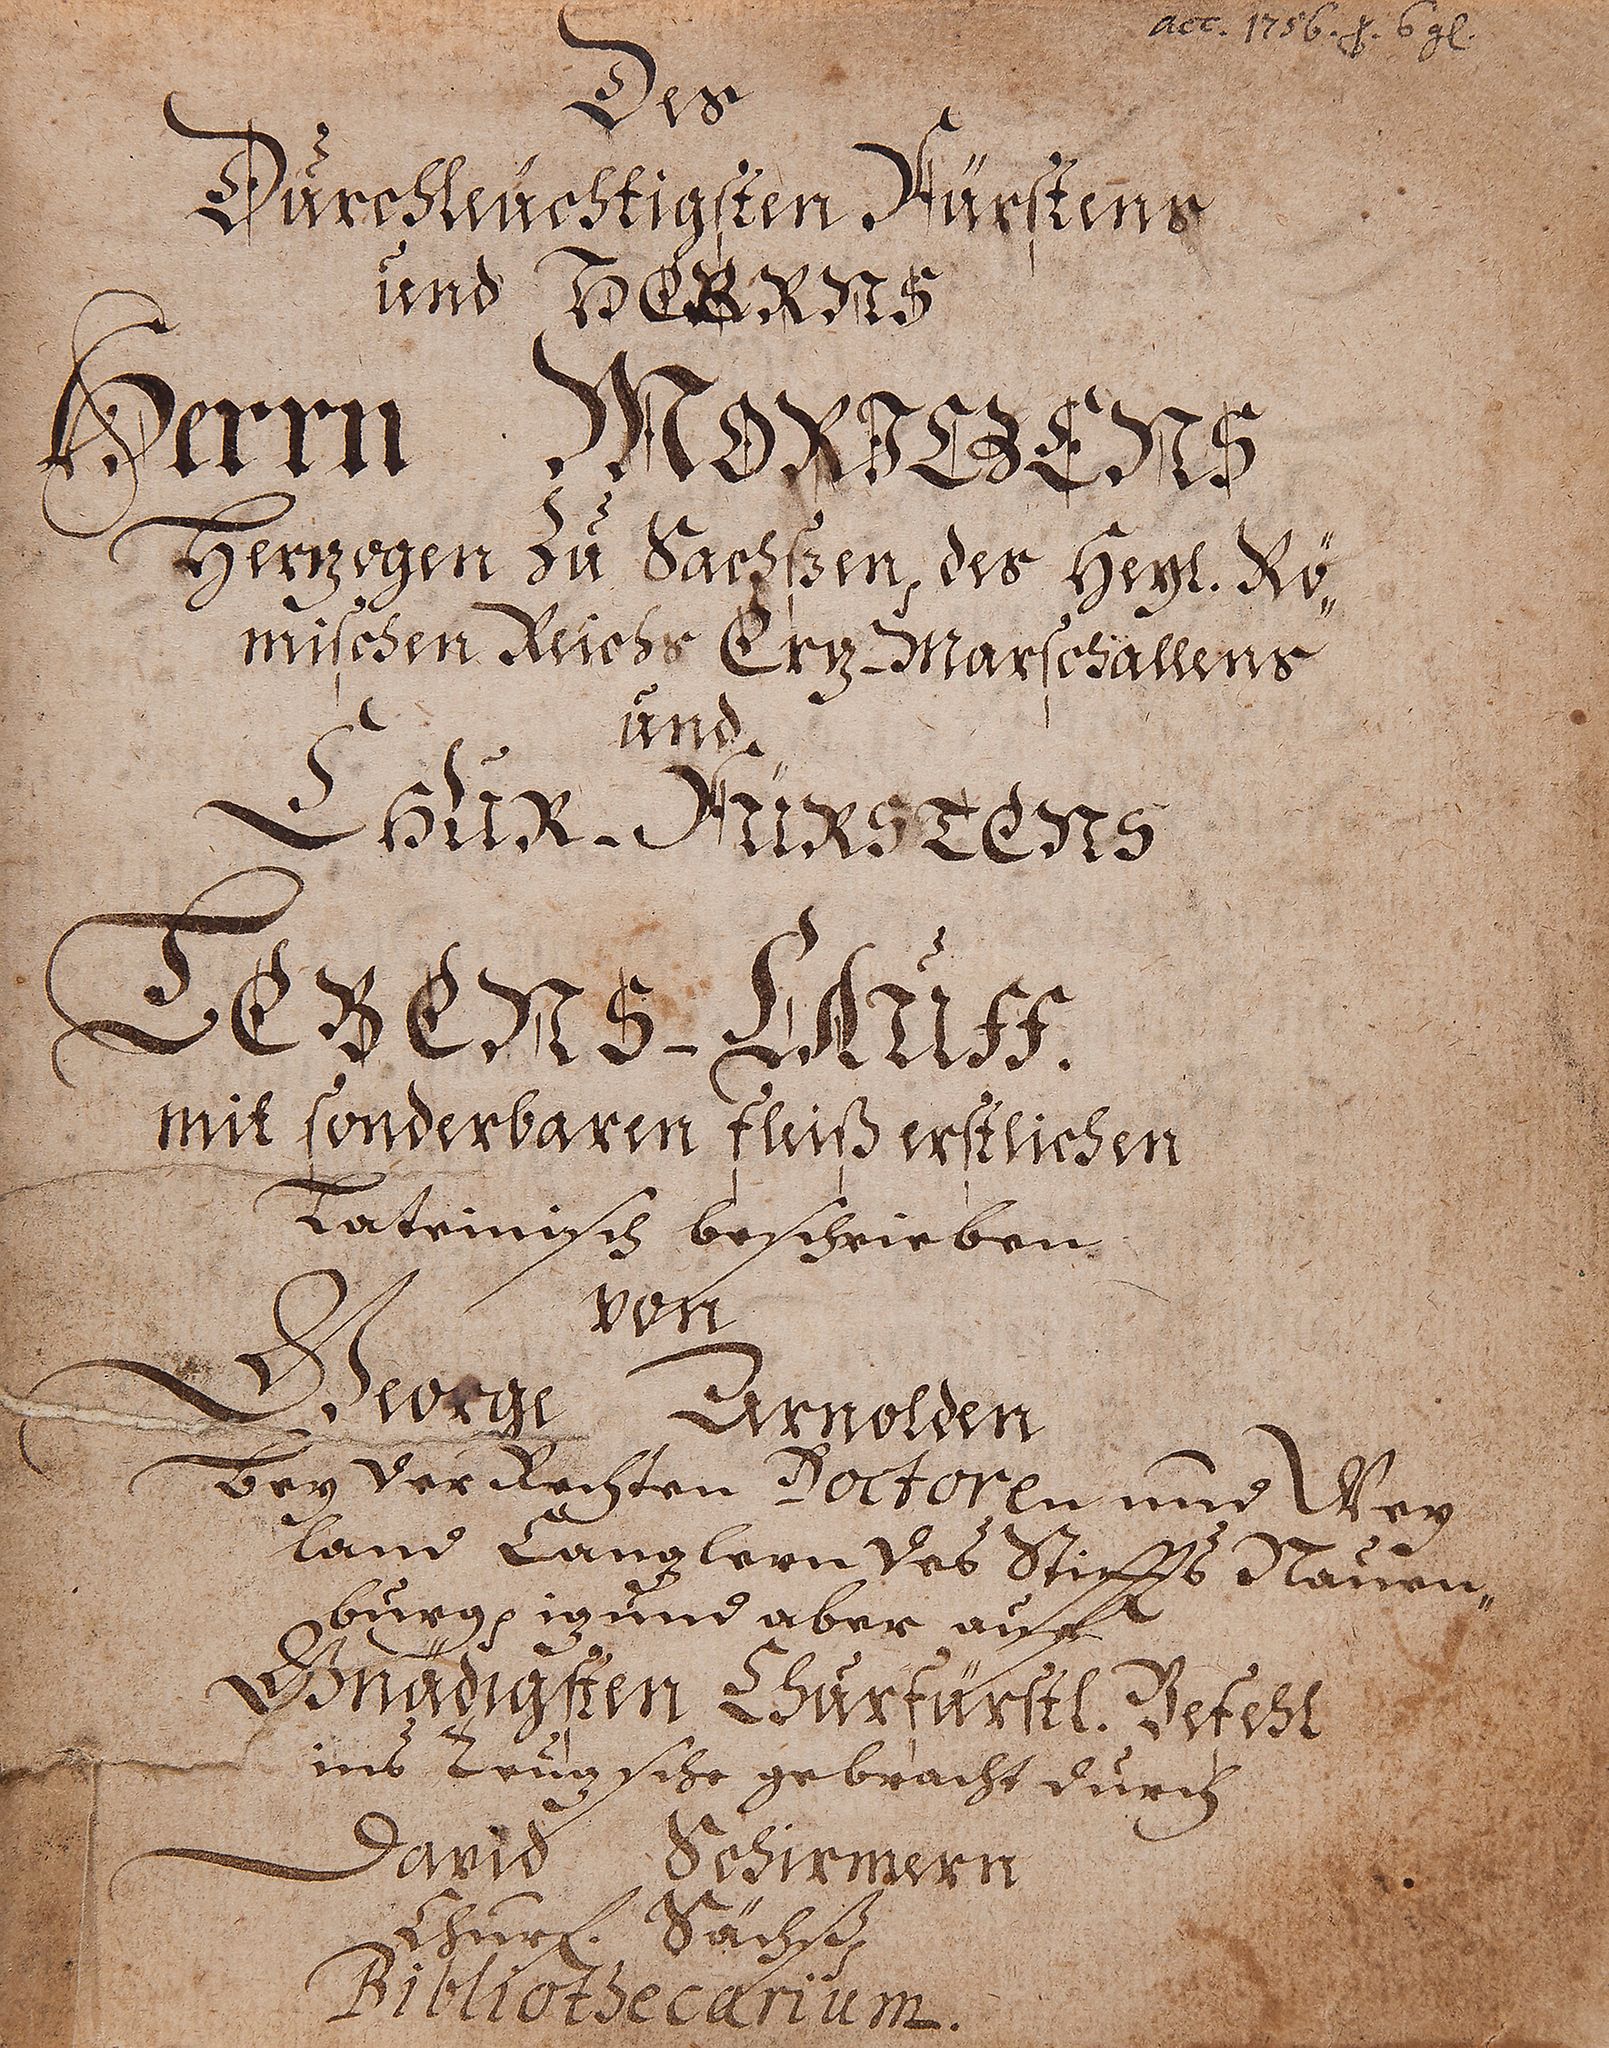 acc. 1756. p. 6 gl.
Des
Durchleuchtigsten Fürstens
und HERRNS
Herrn MORICZENS
Hertzogen Zu Sachszen, des Heyl. Rö„
mischen Reichs Ertz-Marschallens
und
CHUR-FÜRSTENS
LEBENS-LAUFF.
mit sonderbaren fleiß erstlichen
Lateinisch beschrieben
von
George Arnolden
Bey der Rechten Doctoren und Wey
land Canzlern des Stiffts Nauen„
burg, itzund aber auff
Gnädigsten Churfürstl. Befehl
ins Teutzsche gebracht durch
David Schirmern
Churf. Sächß,
Bibliothecarium.